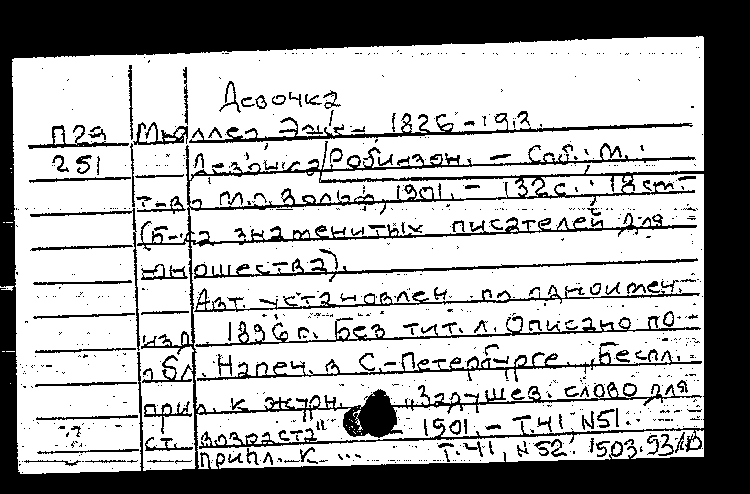 Девочка
П29 Мюллер, Эжен, 1826-1913.
251 Девочка Робинзон. — Спб.; М.:
т-во М.О. Вольф, 1901. — 132с.; 18sm. —
(Б-ка знаменитых писателей для
юношества).
Авт. установлен по одноимен.
изд. 1896г. Без тит. л. Описано по
обл. Напеч. в С.-Петербурге. „Беспл.
прил. к журн. „Задушев. слово для
ст. возраста" — 1901. — Т.41, N51.
Припл. к ... Т.41, N52. 1503.93